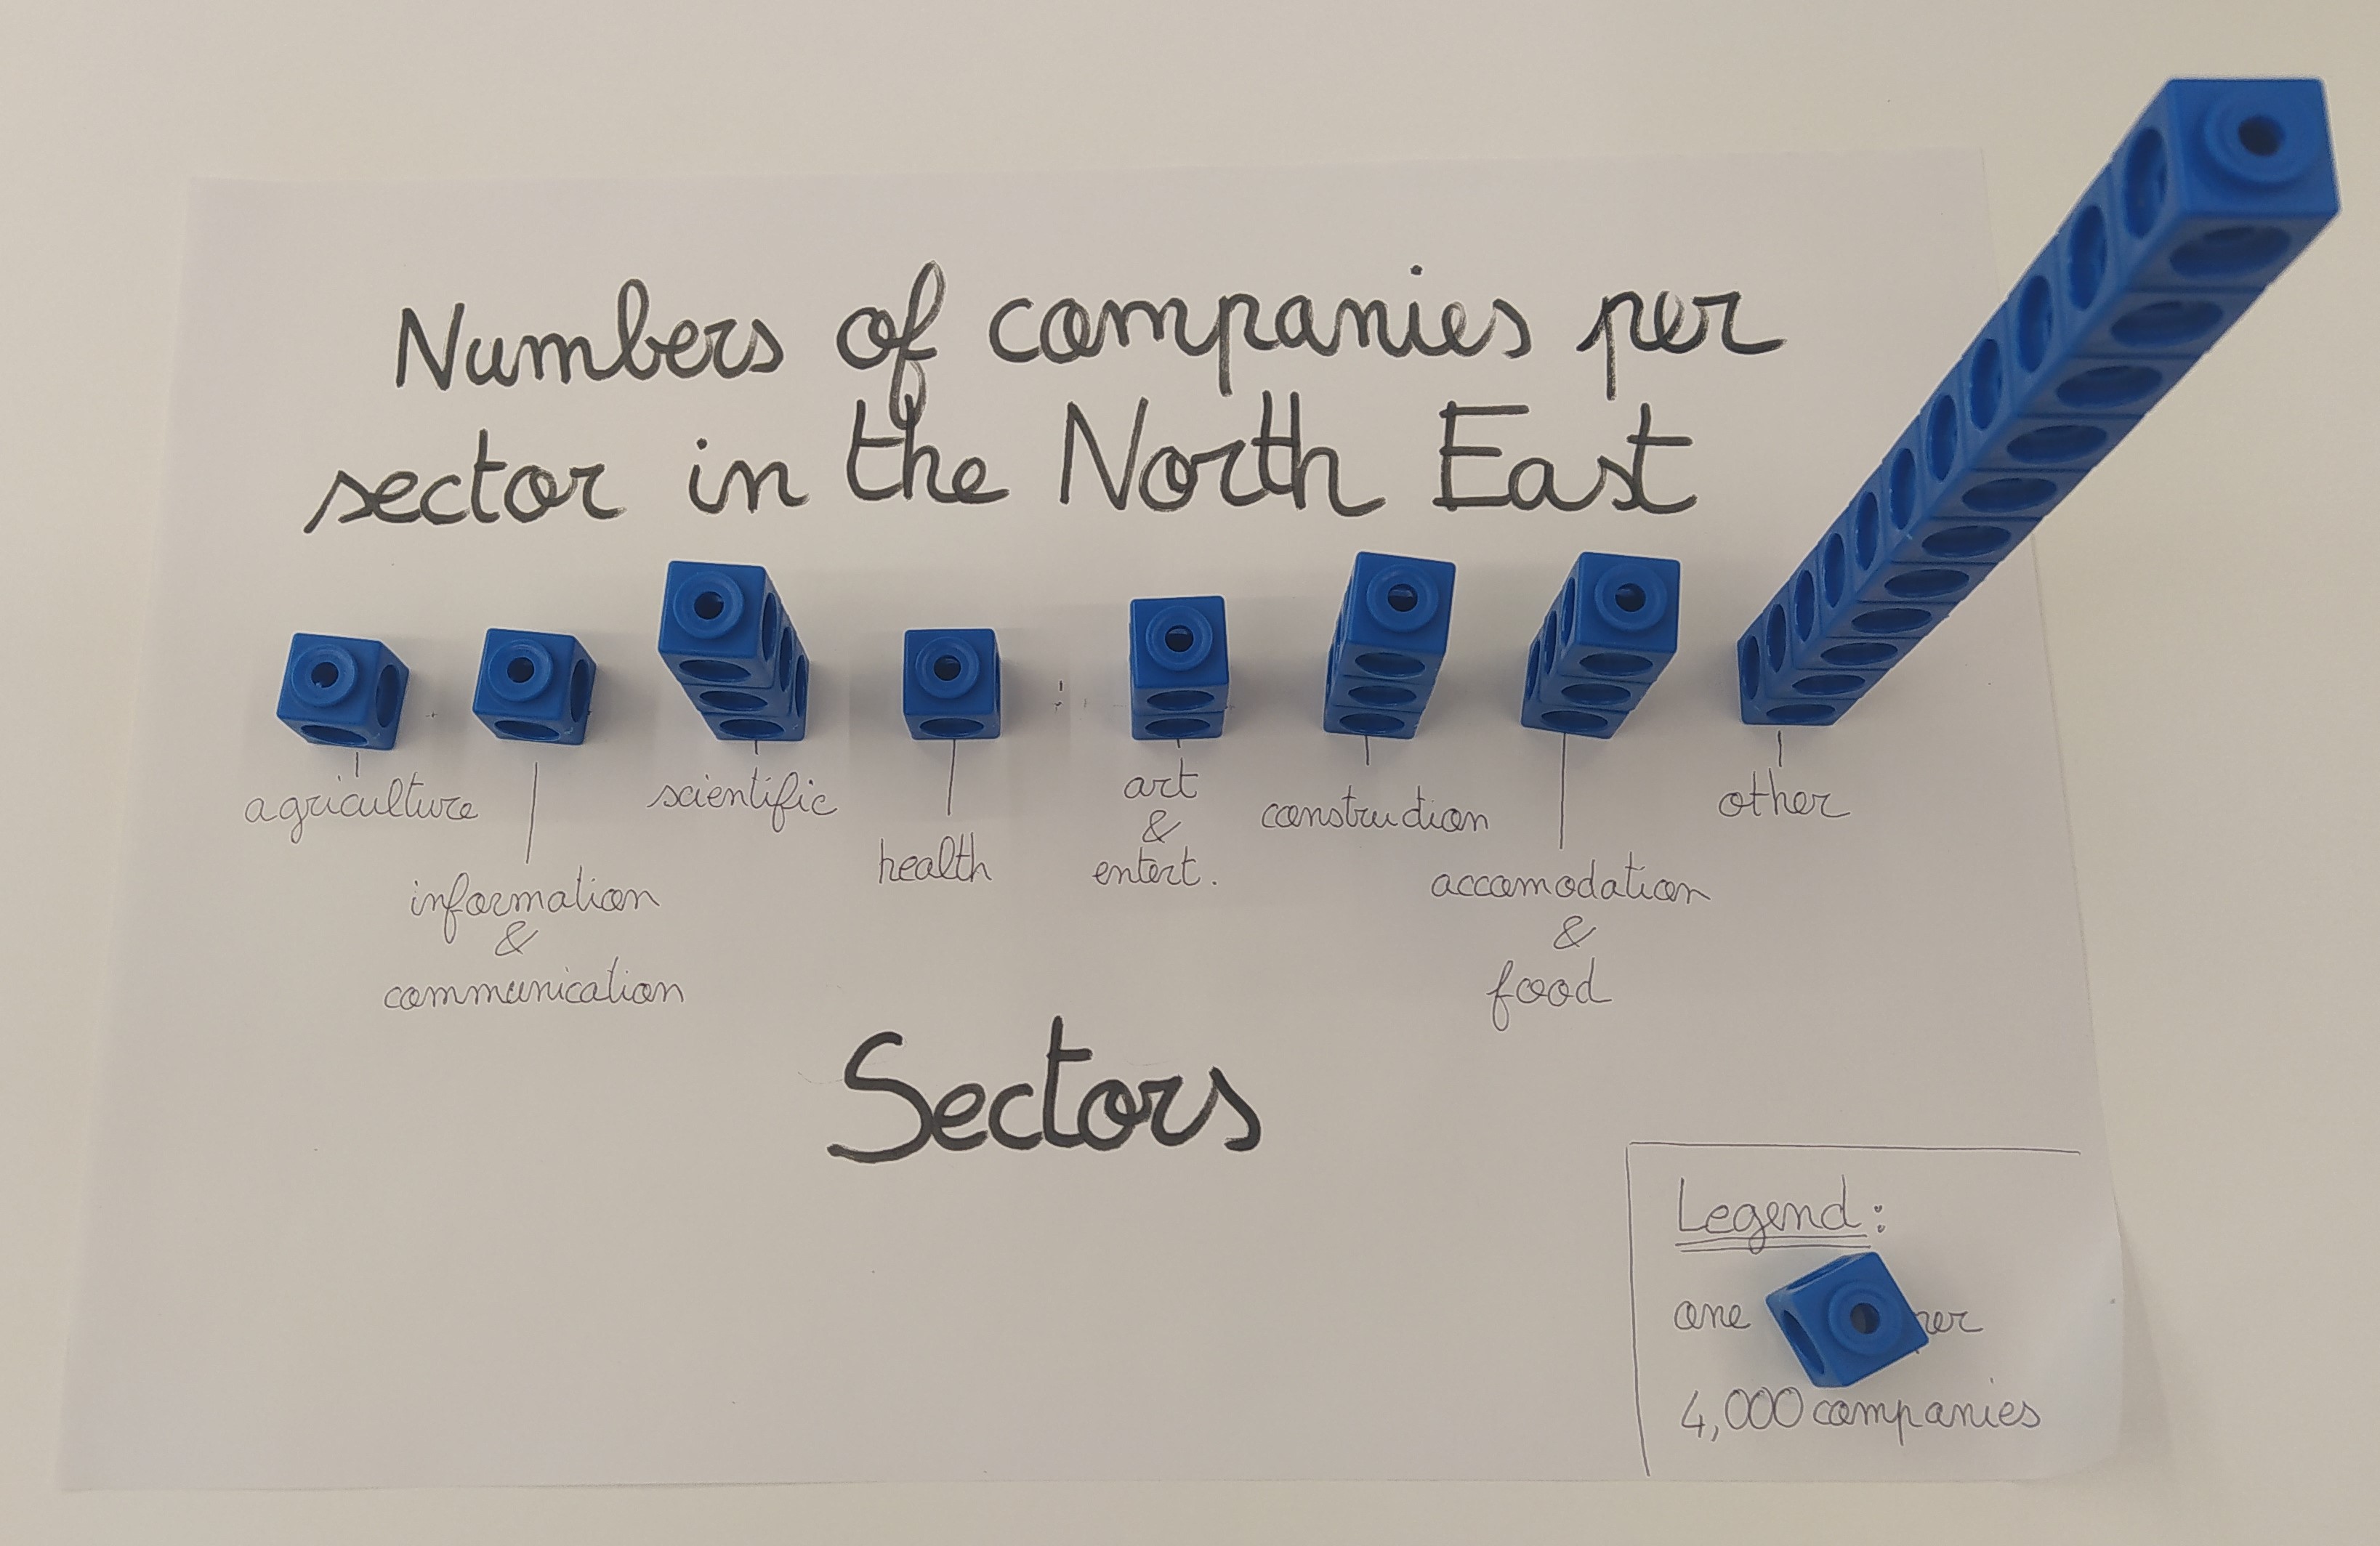 Numbers of companies per
sector in the North East
agriculture
information
&
communication
scientific
health
art
&
entert.
construction
accomodation
&
food
other
Sectors
Legend:
one per
4,000 companies